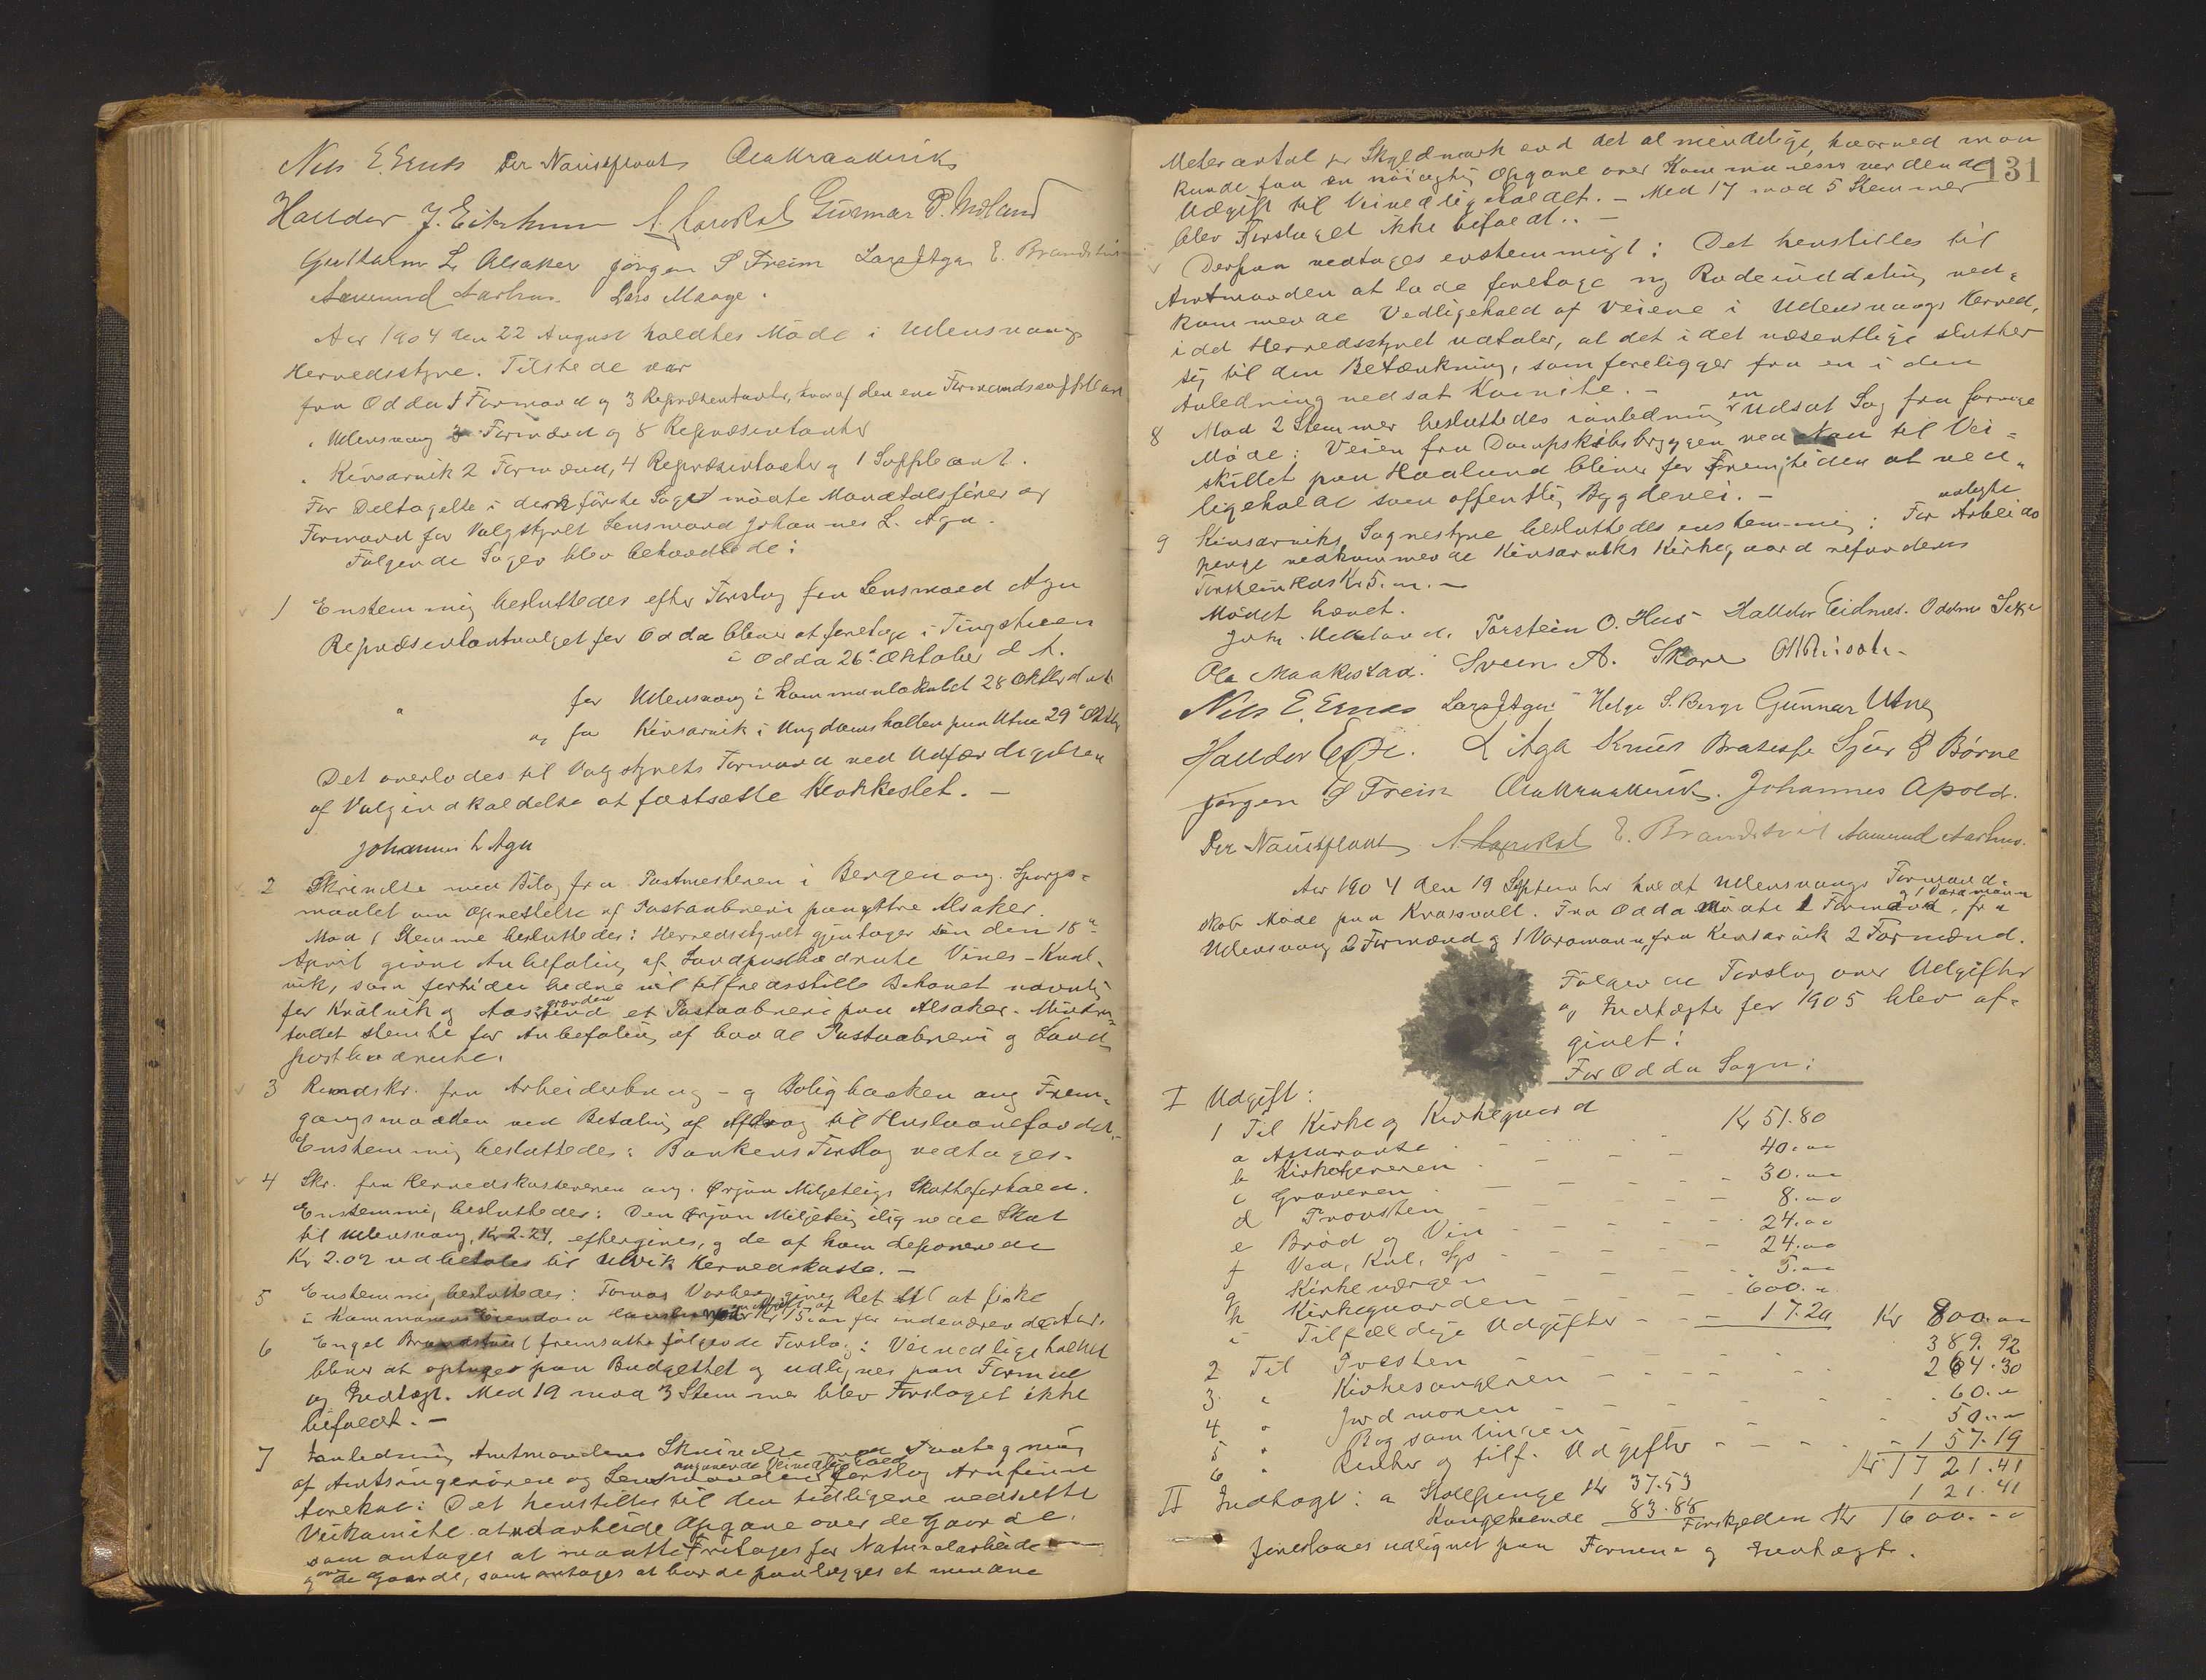 Nils E. Ernes Per Naustflaat Ola Kraakevik
Halldor J. Eitrheim A. Lofthus Gunnar P. Meland
Guttorm L. Alsaker Jørgen S Freim Lars J Aga E. Brandstveit
Aamund Aarhus. Lars Maage.
Aar 1904 den 22 August holdtes Møde i Ullensvangs
Herredsstyre. Tilstede var
fra Odda 1 Formand og 3 Repræsentanter, hvoraf den ene Formandssuppleant
" Ullensvang 3 Formænd og 8 Repræsentanter
" Kinsarvik 2 Formænd, 4 Repræsentanter og 1 Suppleant.
For Deltagelse i den første Sag mødte Mandtalsfører og
Formand for Valgstyret Lensmand Johannes L. Aga.
Følgende Sager blev behandlede:
1 Enstemmig besluttedes efter Forslag fra Lensmand Aga
Repræsentantvalget for Odda bliver at foretage i Tingstuen
i Odda 26de Oktober d. A.
" for Ullensvang i Kommunelokalet 28 Oktbr d. A.
og for Kinsarvik i Ungdomshallen paa Utne 29de Oktbr
Det overlodes til Valgstyrets Formand ved Udfærdigelsen
af Valgindkaldelse at fastsætte Klokkeslet. –
Johannes L Aga
2 Skrivelse med Bilag fra Postmesteren i Bergen ang. Spørgs-
maalet om Oprettelse af Postaabneri paa Ytre Alsaker.
Mod 1 Stemme besluttedes: Herredsstyret gjentager sin den 18de
April givne Anbefaling af Landpostbudrute Vines – Kval-
vik, som fortiden bedre vil tilfredsstille Behovet navnlig
for Kvalvik og Aasgrenden end et Postaabneri paa Alsaker. Mindre-
tallet stemte for Anbefaling af baade Postaabneri og Land-
postbudrute.
3 Rundskr. fra Arbeiderbrug- og Boligbanken ang Frem-
gangsmaaden ved Betaling af Afdrag til Huslaanefondet. –
Enstemmig besluttedes: Bankens Forslag vedtages.
4 Skr. fra Herredskassereren ang. Ørjan Miljeteigs Skatteforhold.
Enstemmig besluttedes: Den Ørjan Miljeteig ilignede Skat
til Ullensvang, Kr 2.24, eftergives, og de af ham deponerede
Kr 2.02 udbetales til Ulvik Herredskasse. –
5 Enstemmig besluttedes: Tomas Vorberg gives Ret til at fiske
i Kommunens Eiendom mod Afgift af Kr 15.00 for indeværende Aar.
6 Engel Brandstveit fremsatte følgende Forslag: Veivedligeholdet
bliver at optages paa Budgettet og udlignes paa Formue
og Indtægt. Med 19 mod 3 Stemmer blev Forslaget ikke
bifaldt. –
7 I anledning Amtmandens Skrivelse med Paategning
af Amtsingeniøren og Lensmanden angaaende Veivedligehold forslog Arnfinn
Torekoven: Det henstilles til den tidligere nedsatte
Veikomite at udarbeide Opgave over de Gaarde,
som antages at maatte fritages for Naturalarbeide
og over de Gaarde, som antages at burde paalægges et mindre
131
Meterantal pr Skyldmark end det almindelige, hvorved man
kunde faa en nøiagtig Opgave over Kommunens vordende
Udgift til Veivedligeholdet. – Med 17 mod 5 Stemmer
blev Forslaget ikke bifaldt. –
Derpaa vedtages enstemmigt: Det henstilles til
Amtmanden at lade foretage ny Rodeinddeling ved-
kommende Vedligehold af Veiene i Ullensvangs Herred,
idet Herredsstyret udtaler, at det i det væsentlige slutter
sig til den Betænkning, som foreligger fra en i den
Anledning nedsat Komite. –
8 Mod 2 Stemmer besluttedes i anledning en Udsat Sag fra forrige
Møde: Veien fra Dampskibsbryggen ved Naa til Vei-
skillet paa Haaland bliver for Fremtiden at ved-
ligeholde som offentlig Bygdevei. –
9 Kinsarviks Sognestyre besluttedes enstemmig: For udlagte Arbeids
penge vedkommende Kinsarviks Kirkegaard refunderes
Torstein Hus Kr 5.00. –
Mødet hævet.
John Mekeland. Torstein O. Hus Halldor Eidnes. Oddm Sexe
Ola Maakestad. Svein A. Skare
Nils E. Ernes Lars J Aga Helge S. Berge Gunnar Utne
Halldor L Aga Knut Bratespe Sjur S Børve
Jørgen S Freim Ola Kraakevik. Johannes Apold.
Per Naustflaat A. Lofthus E. Brandstveit Aamund Aarhus.
Aar 1904 den 19 September holdt Ullensvangs Formand-
skab Møde paa Kvarsvoll. Fra Odda mødte 1 Formand og 1 Varamann, fra
Ullensvang 2 Formænd og 1 Varamann, fra Kinsarvik 2 Formænd.
Følgende Forslag over Udgifter
og Indtægter for 1905 blev af-
givet:
For Odda Sogn:
I Udgift:
1 Til Kirke og Kirkegaard
a Assurance Kr 51.80
b Kirketjeneren 40.00
c Graveren 30.00
d Provsten 8.00
e Brød og Vin 24.00
f Ved, Kul, Lys 24.00
g Kirkeværgen 5.00
h Kirkegaarden 600.00
i Tilfældige Udgifter 17.20 Kr 800.00
2 Til Presten 389.92
3 " Kirkesangeren 264.30
4 " Jordmoren 60.00
5 " Bogsamlingen 50.00
6 " Renter og tilf. Udgifter 157.19
Kr 1721.41
II Indtægt: a Kollpenge Kr 37.53
Kongetiende 83.88 121.41
Forskjellen Kr 1600.00
foreslaaes udlignet paa Formue og Indtægt.